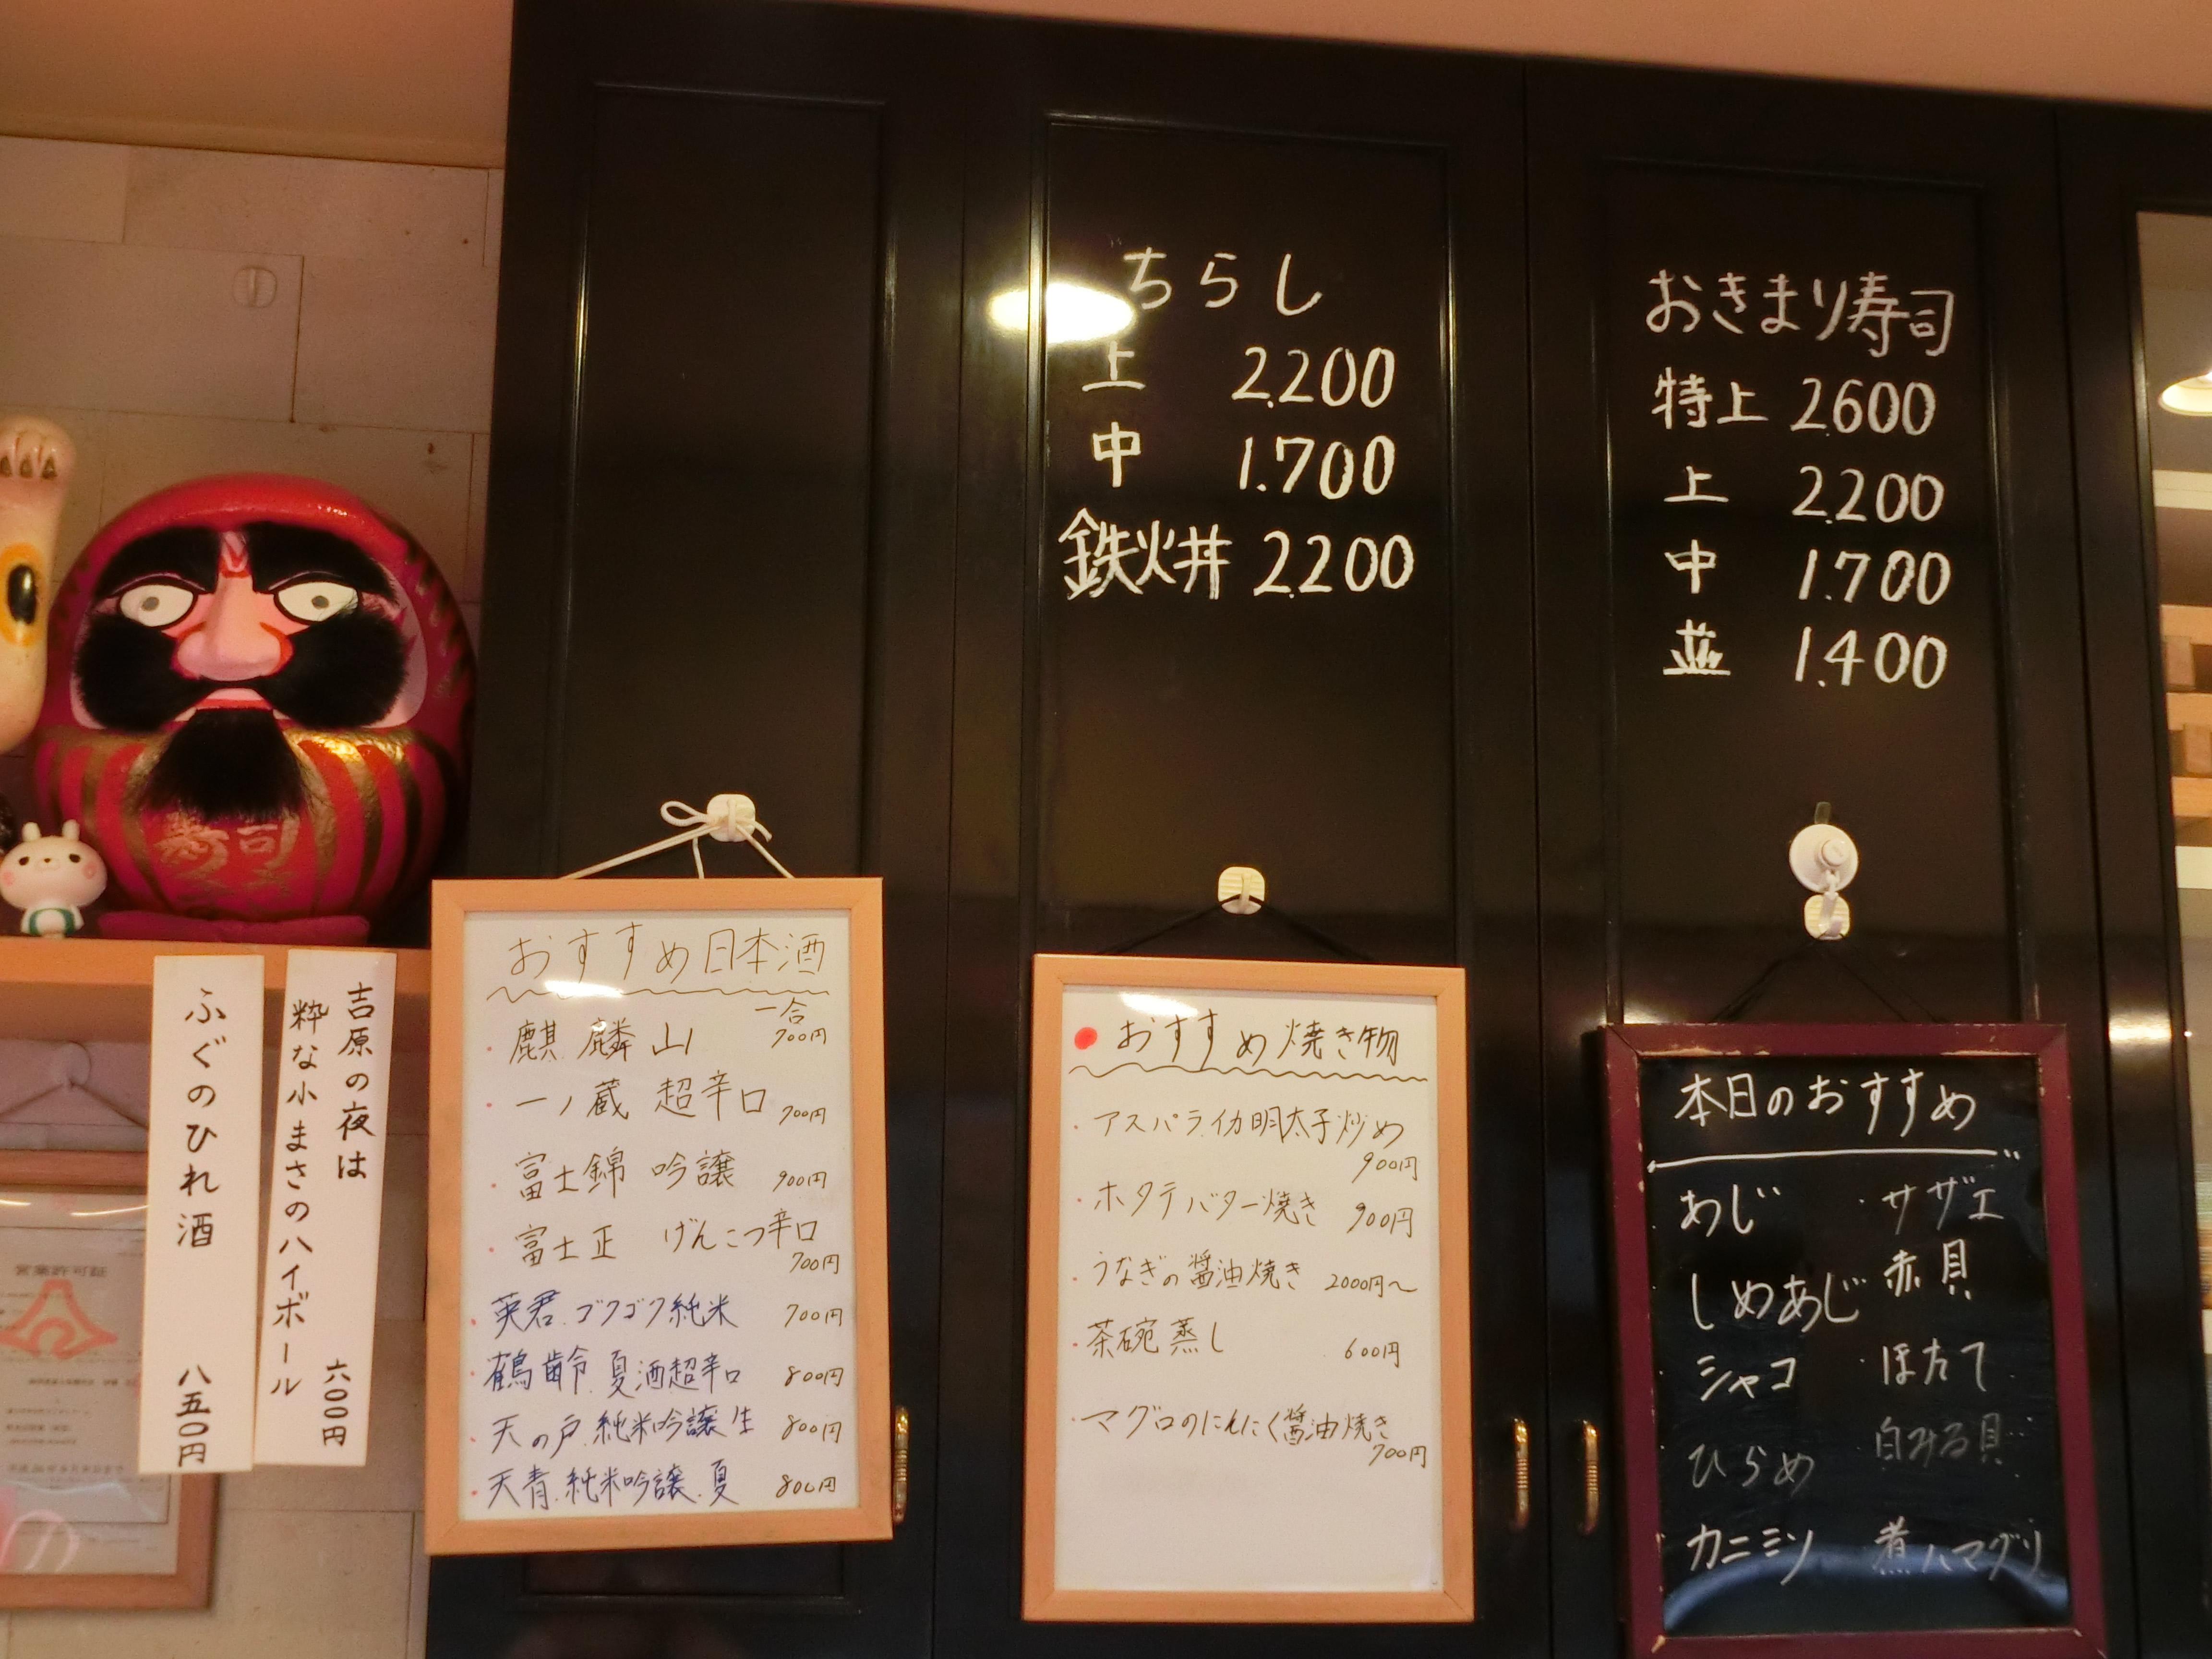 ちらし
上 2.200
中 1.700
鉄火丼 2.200
おきまり寿司
特上 2.600
上 2.200
中 1.700
並 1.400
寿司
吉原の夜は
粋な小まさのハイボール 六〇〇円
ふぐのひれ酒 八五〇円
営業許可証
おすすめ日本酒
一合
・麒麟山 700円
・一ノ蔵 超辛口 700円
・富士錦 吟醸 900円
・富士正 げんこつ辛口
700円
・英君.ゴクゴク純米 700円
・鶴齢.夏酒超辛口 800円
・天の戸.純米吟醸生 800円
・天青.純米吟醸.夏 800円
●おすすめ焼き物
・アスパライカ明太子炒め
900円
・ホタテバター焼き 900円
・うなぎの醤油焼き 2000円〜
・茶碗蒸し 600円
・マグロのにんにく醤油焼き
700円
本日のおすすめ
・あじ ・サザエ
・しめあじ 赤貝
・シャコ ・ほたて
・ひらめ 白みる貝
・カニミソ 煮ハマグリ